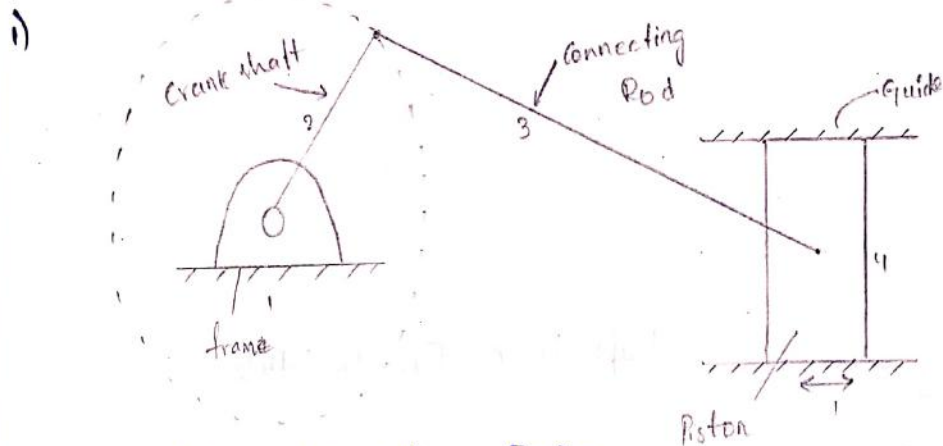 i)
Crank shaft
Connecting
Rod
Guide
2
3
4
1
frame
1
Piston